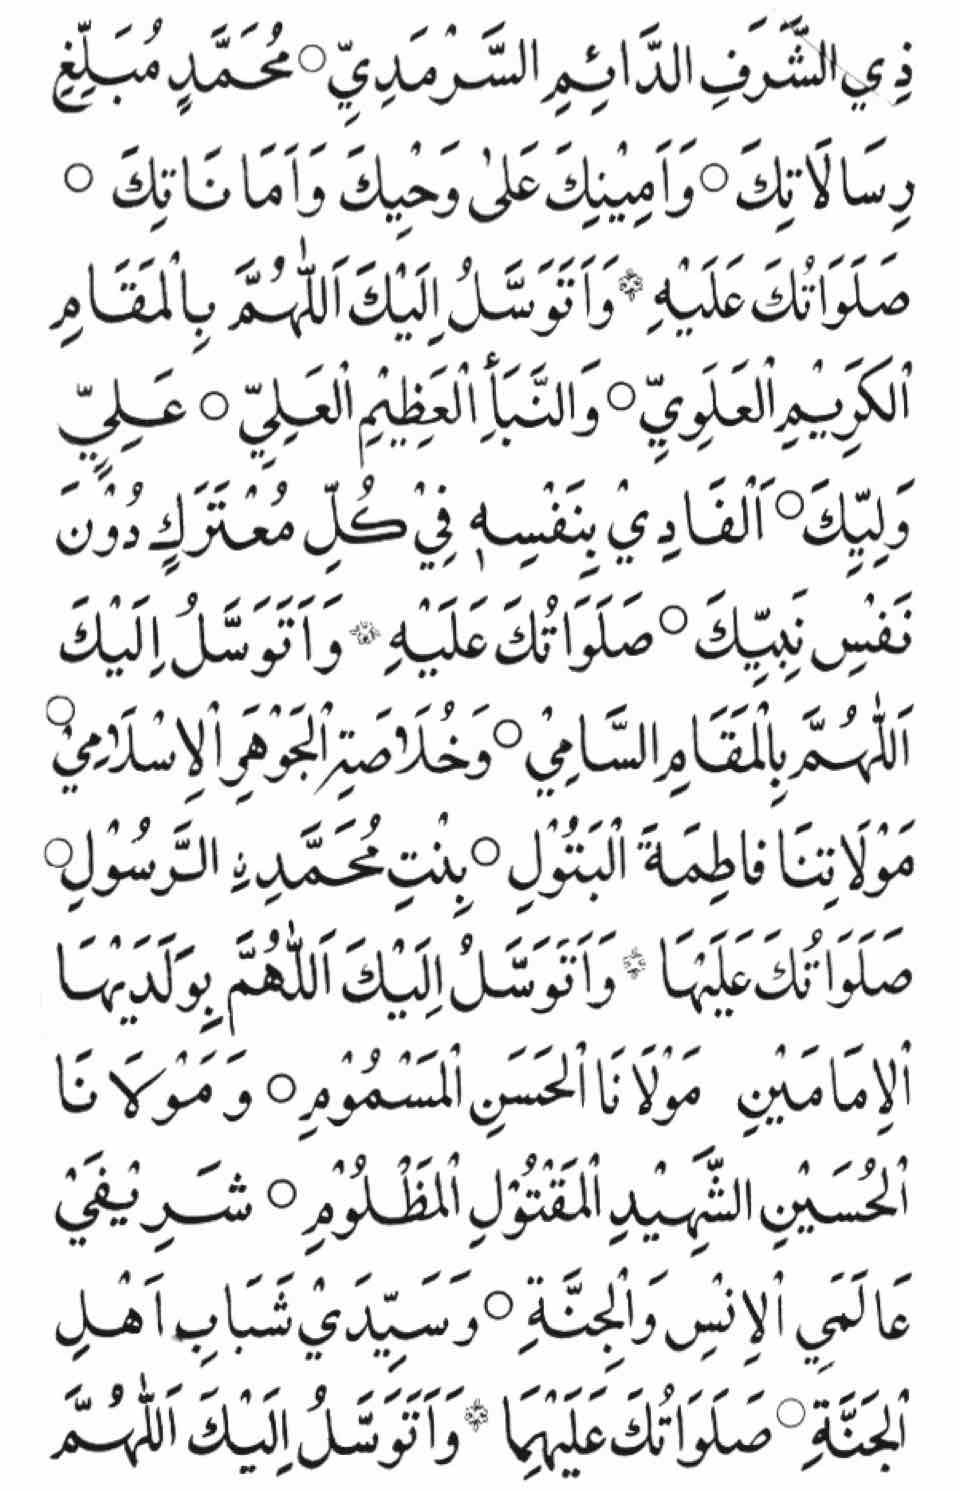 ذِي الشَّرَفِ الدَّائِمِ السَّرْمَدِيِّ ○ مُحَمَّدٍ مُبَلِّغِ
رِسَالَاتِكَ ○ وَاَمِيْنِكَ عَلىٰ وَحْيِكَ وَاَمَانَاتِكَ ○
صَلَوَاتُكَ عَلَيْهِ * وَاَتَوَسَّلُ اِلَيْكَ اَللّٰهُمَّ بِالْمَقَامِ
الْكَرِيْمِ الْعَلَوِيِّ ○ وَالنَّبَأِ الْعَظِيْمِ الْعَلِيِّ ○ عَلِيٍّ
وَلِيِّكَ ○ اَلْفَادِيْ بِنَفْسِهٖ فِيْ كُلِّ مُعْتَرَكٍ دُوْنَ
نَفْسِ نَبِيِّكَ ○ صَلَوَاتُكَ عَلَيْهِ * وَاَتَوَسَّلُ اِلَيْكَ
اَللّٰهُمَّ بِالْمَقَامِ السَّامِيْ ○ وَخُلَاصَةِ الْجَوْهَرِ الْاِسْلَامِيْ ○
مَوْلَاتِنَا فَاطِمَةَ الْبَتُوْلِ ○ بِنْتِ مُحَمَّدِنِ الرَّسُوْلِ ○
صَلَوَاتُكَ عَلَيْهَا * وَاَتَوَسَّلُ اِلَيْكَ اَللّٰهُمَّ بِوَلَدَيْهَا
الْاِمَامَيْنِ مَوْلَانَا الْحَسَنِ الْمَسْمُوْمِ ○ وَمَوْلَانَا
الْحُسَيْنِ الشَّهِيْدِ الْمَقْتُوْلِ الْمَظْلُوْمِ ○ شَرِيْفَيْ
عَالَمَيِ الْاِنْسِ وَالْجِنَّةِ ○ وَسَيِّدَيْ شَبَابِ اَهْلِ
الْجَنَّةِ ○ صَلَوَاتُكَ عَلَيْهِمَا * وَاَتَوَسَّلُ اِلَيْكَ اَللّٰهُمَّ